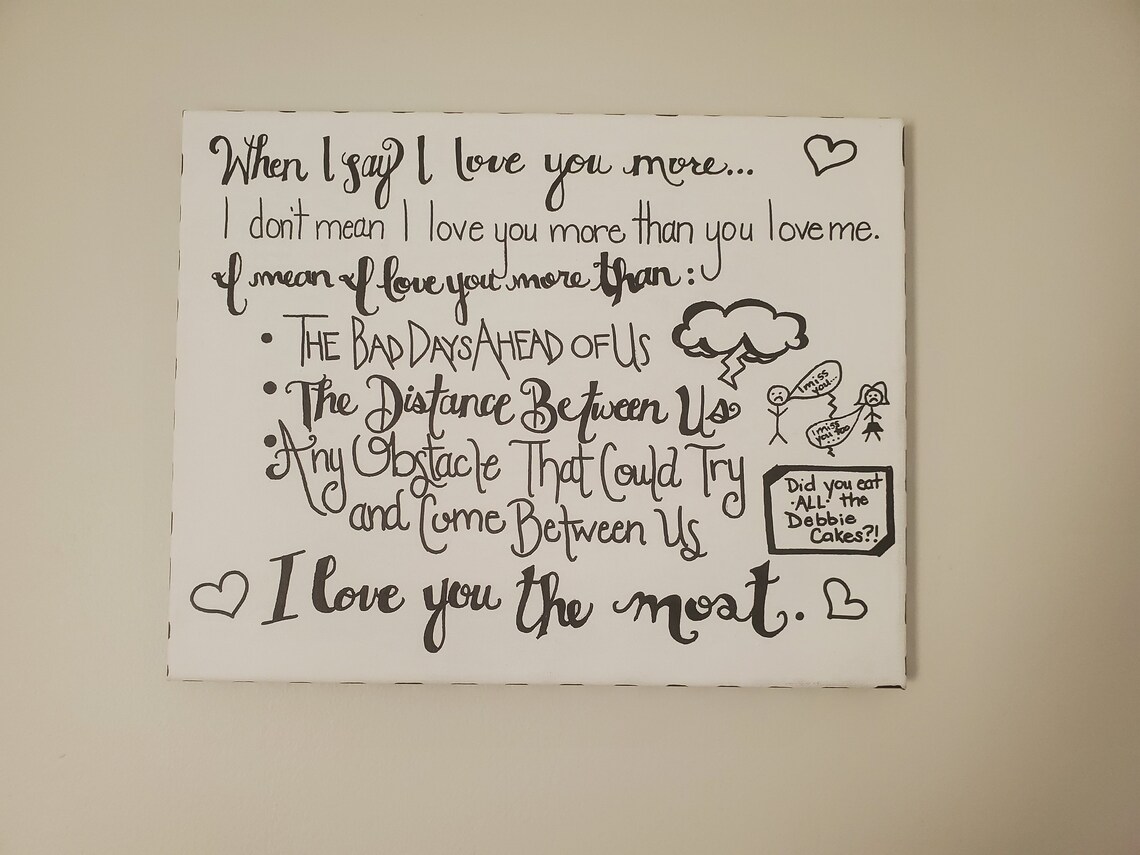 When I say I love you more...
I don't mean I love you more than you love me.
I mean I love you more than:
• The Bad Days Ahead of Us
• The Distance Between Us
I miss you...
I miss you too...
• Any Obstacle That Could Try
and Come Between Us
Did you eat
·ALL· the
Debbie
Cakes?!
I love you the most.